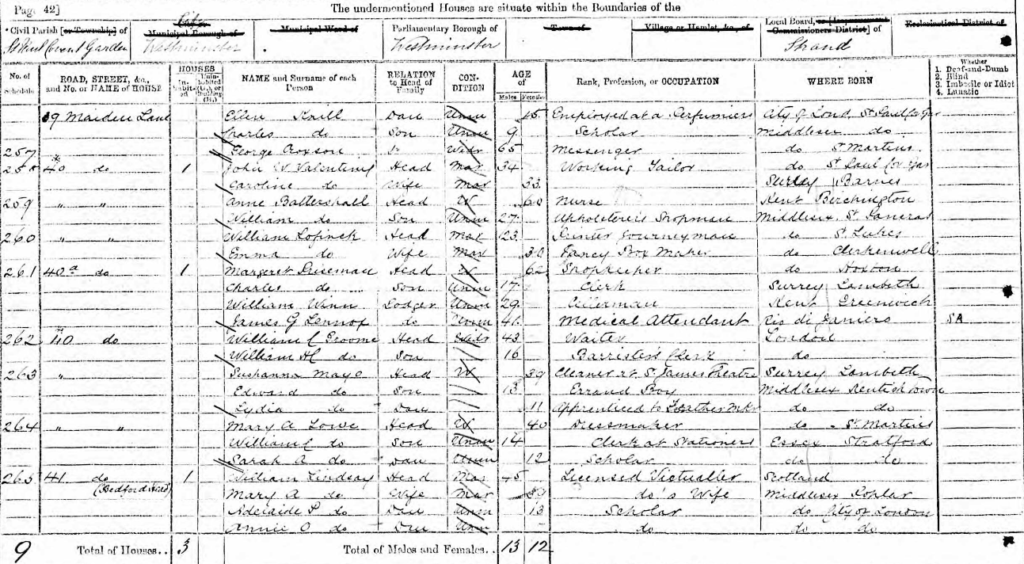 Page 42] The undermentioned Houses are situate within the Boundaries of the
Civil Parish [or Township] of City or Municipal Borough of Municipal Ward of Parliamentary Borough of Town of Village or Hamlet, &c., of Local Board, or [Improvement Commissioners District] of Ecclesiastical District of
St Paul Covent Garden Westminster Westminster Strand
No. of Schedule ROAD, STREET, &c., and No. or NAME of HOUSE HOUSES Inhabited Uninhabited (U.), or Building (B.) NAME and Surname of each Person RELATION to Head of Family CONDITION AGE of Males Females Rank, Profession, or OCCUPATION WHERE BORN Whether 1. Deaf-and-Dumb 2. Blind 3. Imbecile or Idiot 4. Lunatic
39 Maiden Lane Ellen Daur Unm 15 Employed at a Perfumiers City of Lond
Charles do Son Unm 9 Scholar Middlesex do
257 George Croxson Widr 65 Messenger do St Martins
258 40 do 1 John W Valentine Head Mar 34 Working Tailor do St Paul Cov Gar
Caroline do Wife Mar 33 Surrey Barnes
259 " " Anne Battershall Head W 60 Nurse Kent Birchington
William do Son Unm 27 Upholsterer's Middlesex St Pancras
260 " " William Head Mar 23 Printer Journeyman do St Lukes
Emma do Wife Mar 30 Fancy Box Maker do Clerkenwell
261 40a do 1 Margaret Head W 62 Shopkeeper do Hoxton
Charles do Son Unm 17 Clerk Surrey Lambeth
William Winn Lodger Unm 29 Kent Greenwich
James G Lennox do Unm 41 Medical Attendant Rio di Janiero SA
262 40 do William C Groome Head Widr 43 Waiter London
William H do Son 16 Barrister's Clerk do
263 " Susanna Mayo Head W 39 Cleaner at St James Theatre Surrey Lambeth
Edward do Son 13 Errand Boy Middlesex Kentish Town
Lydia do Dau 11 Apprenticed to do do
264 " " Mary A Lowe Head W 40 Dressmaker do St Martins
William C do Son Unm 14 Clerk at Stationers Essex Stratford
Sarah A do Dau Unm 12 Scholar do do
265 41 do 1 William Lindsay Head Mar 45 Licensed Victualler Scotland
(Bedford Head) Mary A do Wife Mar 39 do's Wife Middlesex Poplar
Adelaide P do Dau Unm 13 Scholar do City of London
Annie O do Dau Unm do do do
9 Total of Houses.. 3 Total of Males and Females.. 13 12